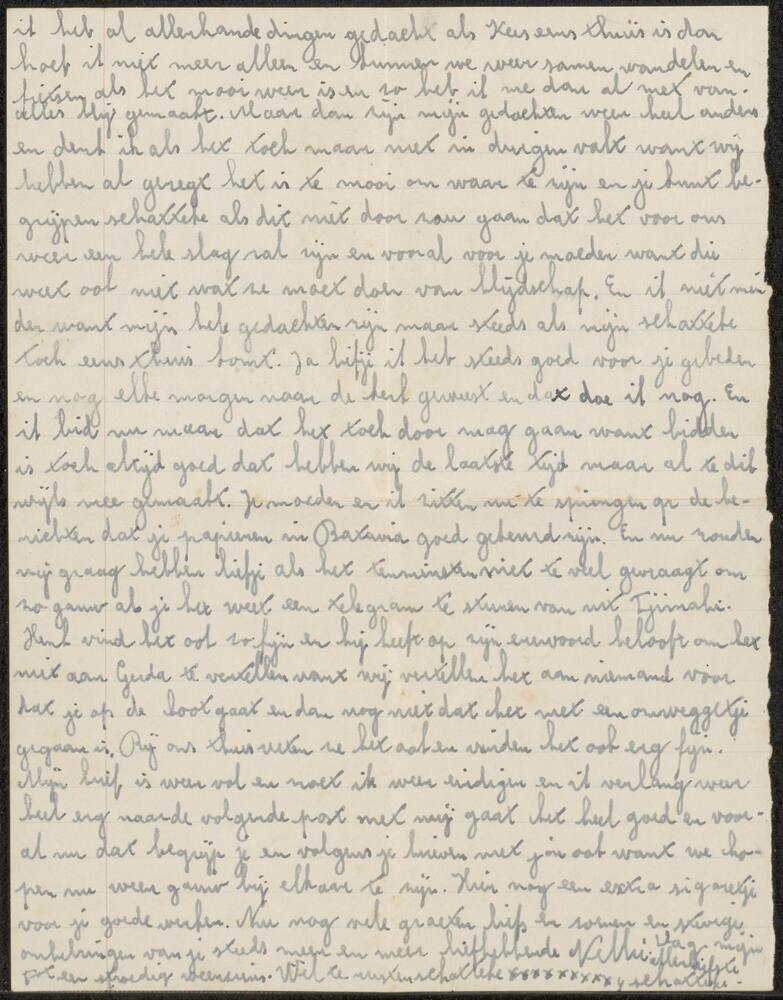 ik heb al allerhande dingen gedacht als Kees eens thuis is dan
hoef ik niet meer alleen en kunnen we weer samen wandelen en
fietsen als het mooi weer is en zo heb ik me dan al met van-
alles blij gemaakt. Maar dan zijn mijn gedachten weer heel anders
en denk ik als het toch maar niet in duigen valt want wij
hebben al gezegt het is te mooi om waar te zijn en je kunt be-
grijpen schattebe als dit niet door zou gaan dat het voor ons
weer een hele slag zal zijn en vooral voor je moeder want die
weet ook niet wat ze moet doen van blijdschap. En ik niet min
der want mijn hele gedachten zijn maar steeds als mijn schattebe
toch eens thuis komt. Ja liefje ik heb steeds goed voor je gebeden
en nog elke morgen naar de kerk geweest en dat doe ik nog. En
ik bid nu maar dat het toch door mag gaan want bidden
is toch altijd goed dat hebben wij de laatste tijd maar al te dik
wijls mee gemaakt. Je moeder en ik zitten nu te springen op de be-
richten dat je papieren in Batavia goed gekeurd zijn. En nu zouden
wij graag hebben liefje als het tenminsten niet te veel gevraagt om
zo gauw als je het weet een telegram te sturen van uit Tjimahi.
Henk vind het ook zo fijn en hij heeft op zijn erewoord beloofd om het
niet aan Gerda te vertellen want wij vertellen het aan niemand voor
dat je op de boot gaat en dan nog niet dat het met een omweggetje
gegaan is. Bij ons thuis weten ze het ook en vinden het ook erg fijn.
Mijn brief is weer vol en moet ik weer eindigen en ik verlang weer
heel erg naar de volgende post met mij gaat het heel goed en voor-
al nu dat begrijp je en volgens je brieven met jou ook want we ho-
pen nu weer gauw bij elkaar te zijn. Hier nog een extra sigaretje
voor je goede werken. Nu nog vele groeten liefs en zoenen en stevige
omhelzingen van je steeds meer en meer liefhebbende Nellie. Dag mijn
allerliefste
en spoedig weerziens. Wel te rusten schattebe xxxxxxxxx schattebe.